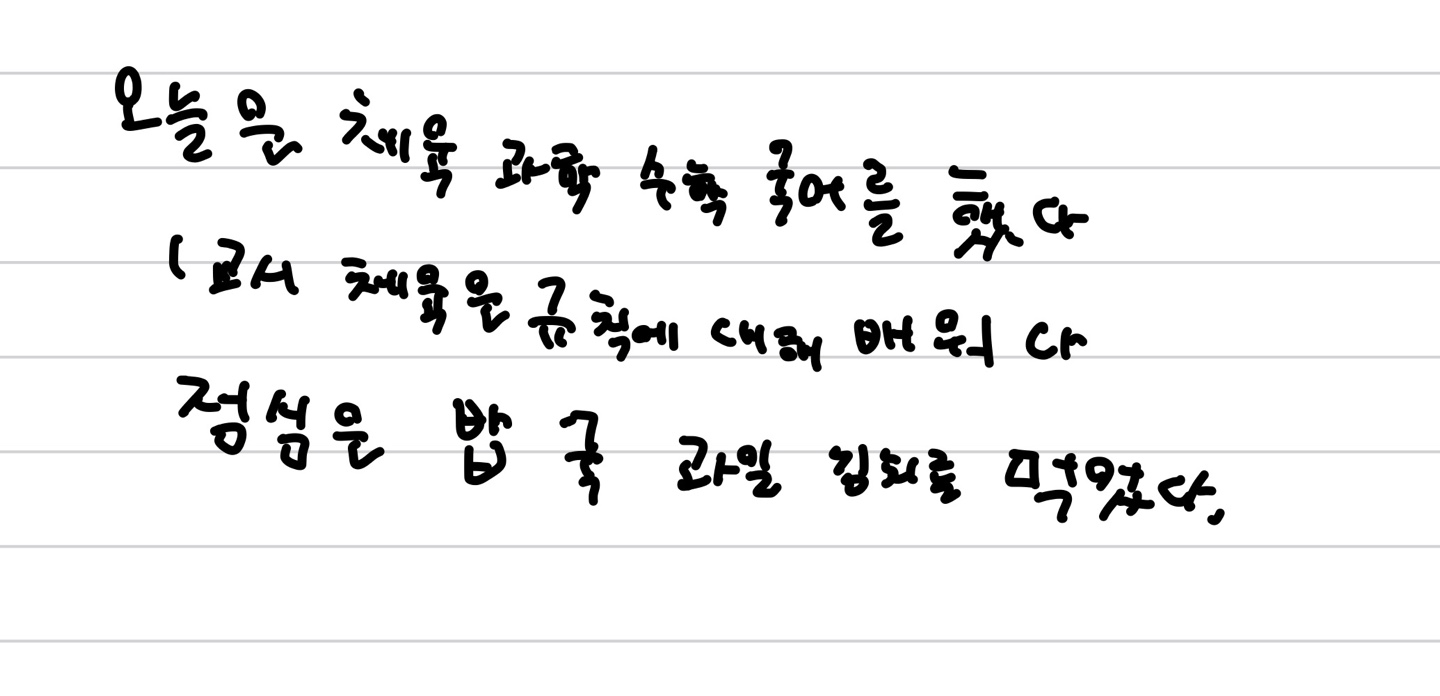 오늘은 체육 과학 수학 국어를 했다
1교시 체육은 규칙에 대해 배워다
점심은 밥 국 과일 김치를 먹었다.